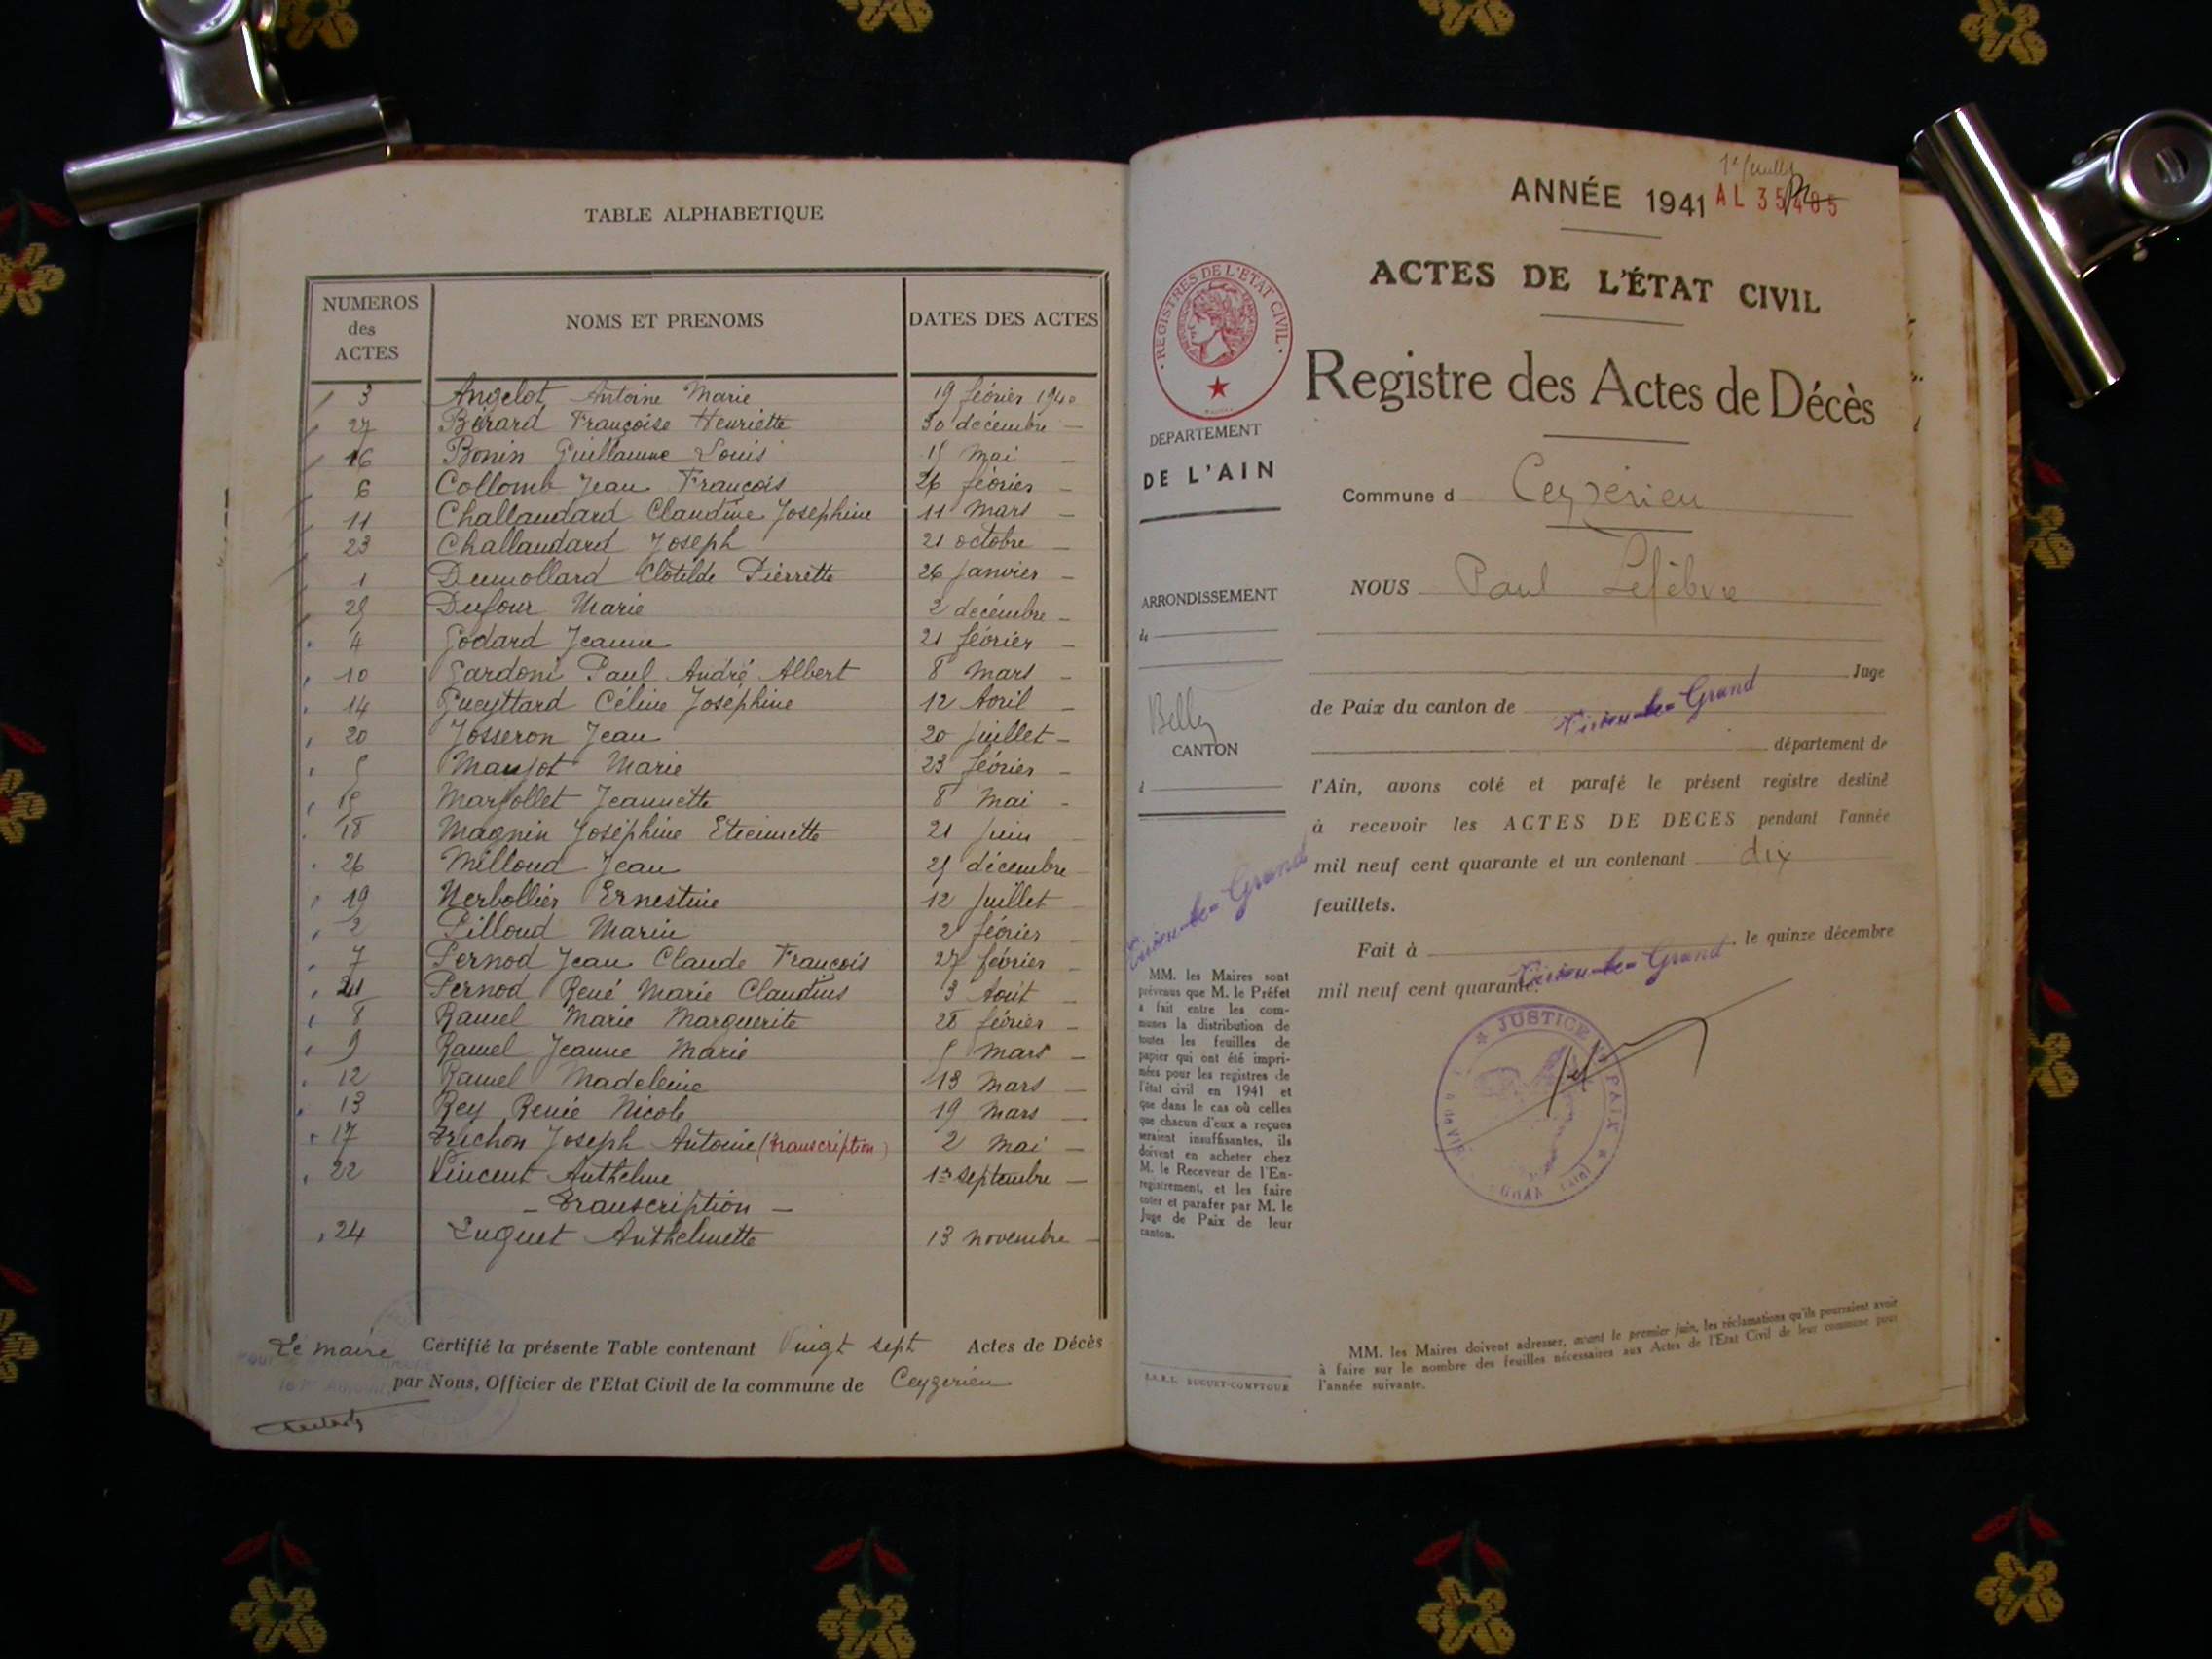 TABLE ALPHABETIQUE
NUMEROS des ACTES NOMS ET PRENOMS DATES DES ACTES
3 Angelot Antoine Marie 19 février 1940
27 Bérard Françoise Henriette 30 décembre –
16 Bonin Guillaume Louis 15 Mai –
6 Collomb Jean François 26 février –
11 Challandard Claudine Joséphine 11 Mars –
23 Challandard Joseph 21 octobre –
1 Dumollard Clotilde Pierrette 26 Janvier –
25 Dufour Marie 2 décembre –
4 Godard Jeanne 21 février –
10 Gardoni Paul André Albert 8 Mars –
14 Gueyttard Céline Joséphine 12 Avril –
20 Josseron Jean 20 Juillet –
5 Maujot Marie 23 février –
15 Marjollet Jeannette 8 Mai –
18 Magnin Joséphine Etiennette 21 Juin
26 Milloud Jean 25 décembre
19 Nerbollier Ernestine 12 Juillet –
2 Pilloud Marin 2 février –
7 Pernod Jean Claude François 27 février –
21 Pernod René Marie Claudius 3 Août –
8 Ramel Marie Marguerite 28 février –
9 Ramel Jeanne Marie 5 Mars –
12 Ramel Madeleine 13 Mars –
13 Rey Renée Nicole 19 Mars –
17 Trichon Joseph Antoine (transcription) 2 Mai –
22 Vincent Anthelme 1er septembre –
– Transcription –
24 Luquet Anthelmette 13 novembre –
Le maire Certifié la présente Table contenant Vingt sept Actes de Décès
par Nous, Officier de l'Etat Civil de la commune de Ceyzérieu
1er feuillet
ANNÉE 1941 AL 35405
ACTES DE L'ÉTAT CIVIL
Registre des Actes de Décès
REGISTRES DE L'ETAT CIVIL
DEPARTEMENT
DE L'AIN
ARRONDISSEMENT
de
Belley
CANTON
d
Virieu-le-Grand
MM. les Maires sont
prévenus que M. le Préfet
a fait entre les com-
munes la distribution de
toutes les feuilles de
papier qui ont été impri-
mées pour les registres de
l'état civil en 1941 et
que dans le cas où celles
que chacun d'eux a reçues
seraient insuffisantes, ils
doivent en acheter chez
M. le Receveur de l'En-
registrement, et les faire
coter et parafer par M. le
Juge de Paix de leur
canton.
Commune d Ceyzérieu
NOUS Paul Lefèbvre
Juge
de Paix du canton de Virieu-le-Grand
département de
l'Ain, avons coté et parafé le présent registre destiné
à recevoir les ACTES DE DECES pendant l'année
mil neuf cent quarante et un contenant dix
feuillets.
Fait à Virieu-le-Grand, le quinze décembre
mil neuf cent quarante.
JUSTICE PAIX
MM. les Maires doivent adresser, avant le premier juin, les réclamations qu'ils pourraient avoir
à faire sur le nombre des feuilles nécessaires aux Actes de l'Etat Civil de leur commune pour
l'année suivante.
S.A.R.L. BUGUET-COMPTOUR